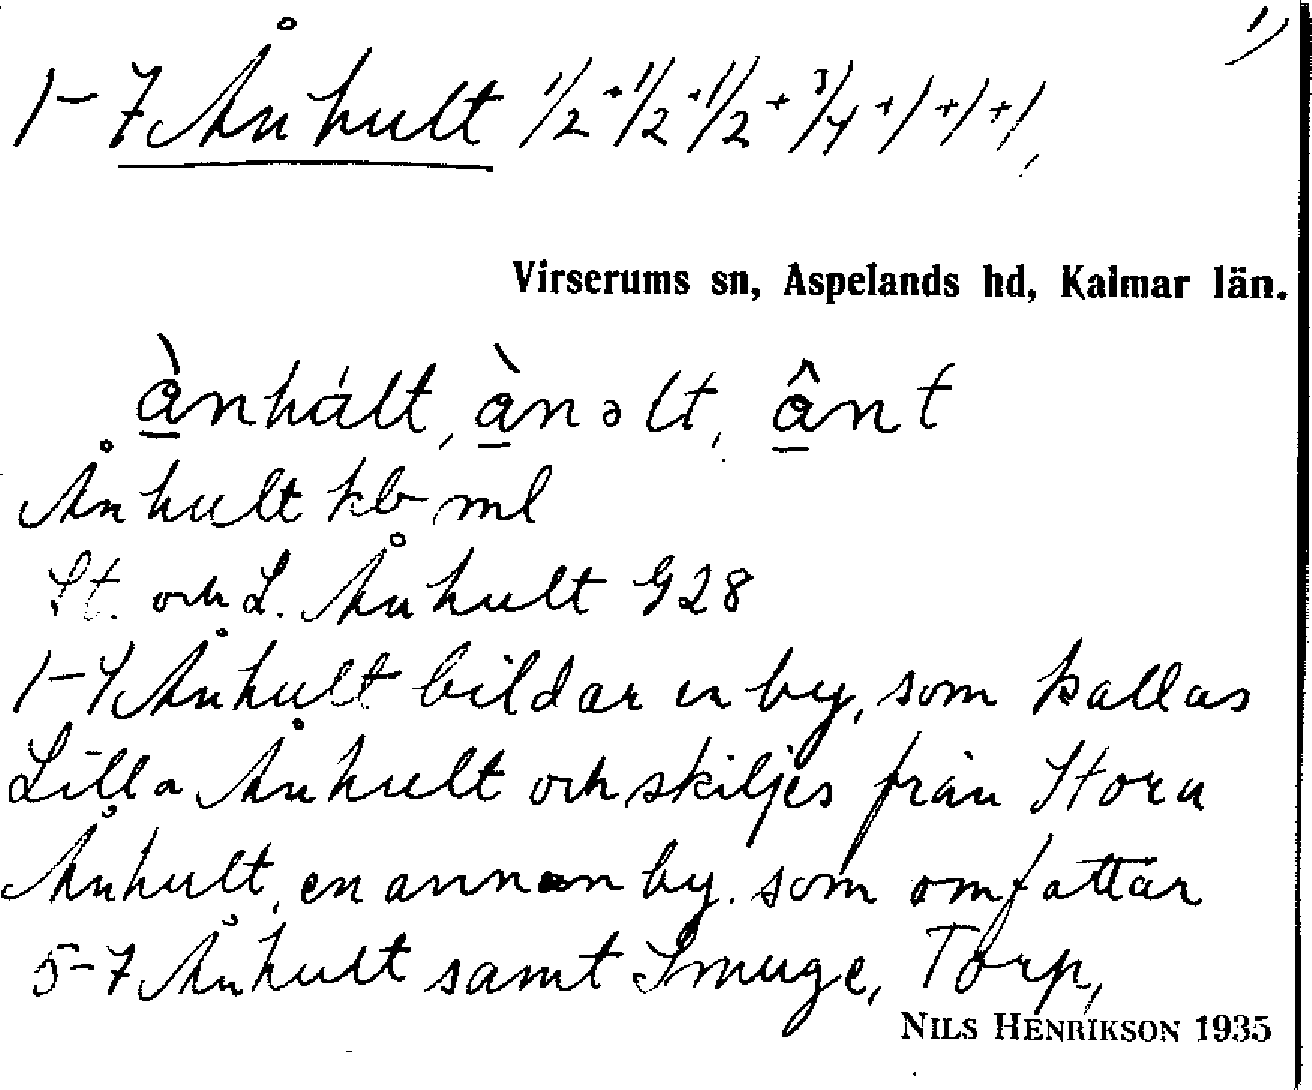 1)
1-7 Ånhult 1/2 + 1/2 + 1/2 + 3/4 + 1 + 1 + 1,
Virserums sn, Aspelands hd, Kalmar län.
ànhált, ànəlt, ânt
Ånhult kb, ml
St. och L. Ånhult G28
1-4 Ånhult bildar en by, som kallas
Lilla Ånhult och skiljes från Stora
Ånhult, en annan by. som omfattar
5-7 Ånhult samt Smuge, Torp,
NILS HENRIKSON 1935